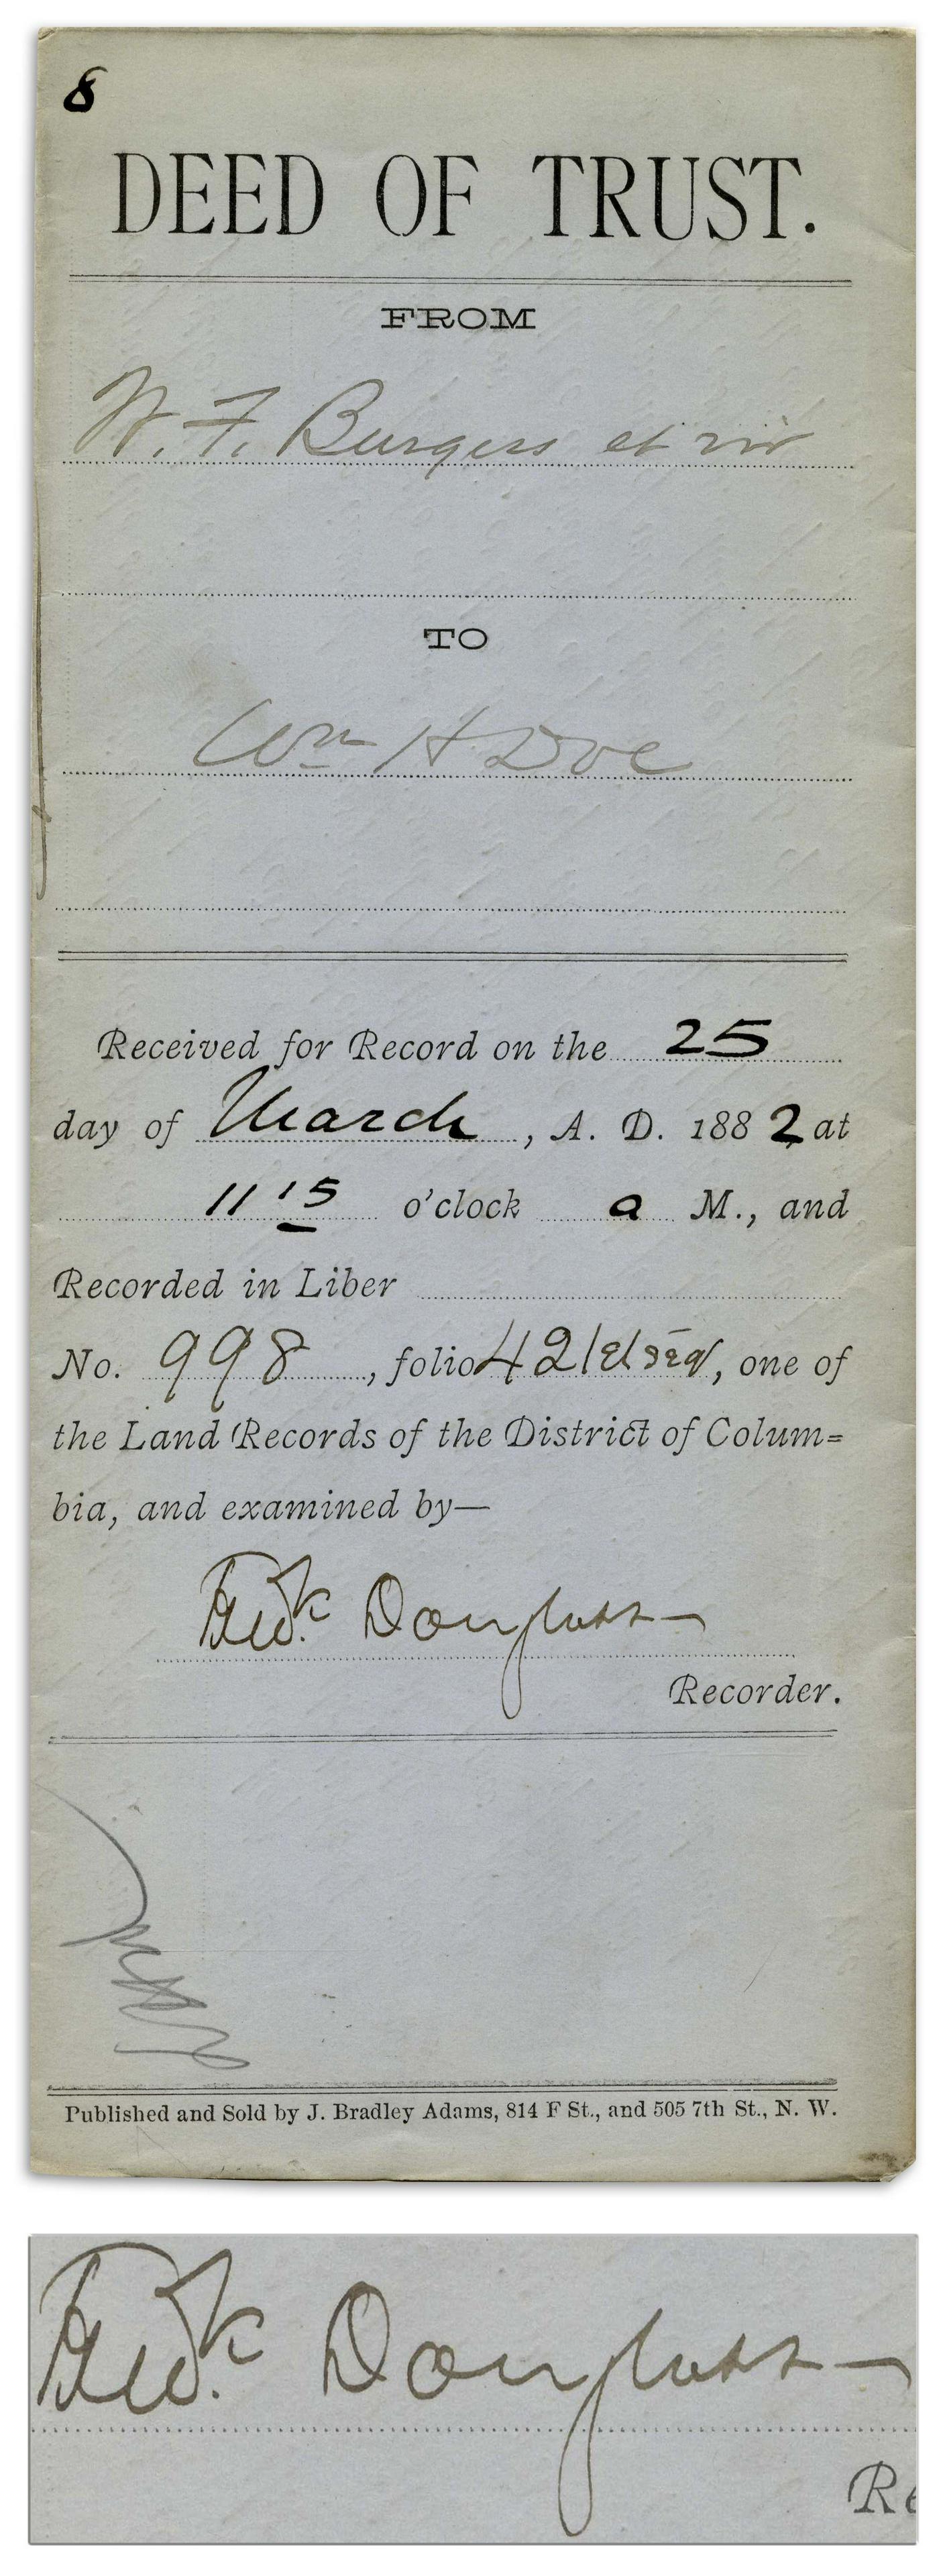 8
DEED OF TRUST.
FROM
W. F. Burgess et vir
TO
Wm H Doe
Received for Record on the 25
day of March, A. D. 1882 at
11 15 o'clock a M., and
Recorded in Liber
No. 998, folio 421 et seq, one of
the Land Records of the District of Colum=
bia, and examined by—
Fredk. Douglass
Recorder.
Published and Sold by J. Bradley Adams, 814 F St., and 505 7th St., N. W.
Fredk. Douglass
Re